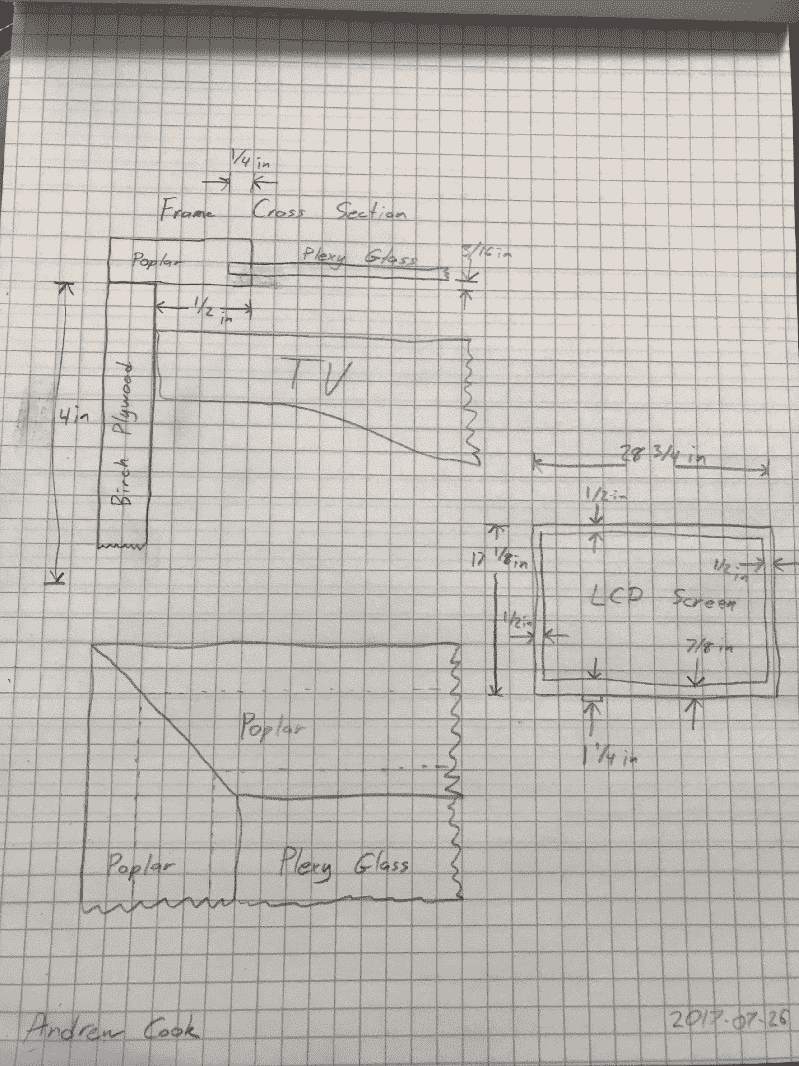 1/4 in
Frame Cross Section
Poplar
Plexy Glass
3/16 in
1/2 in
TV
4 in
Birch Plywood
28 3/4 in
1/2 in
17 1/8 in
1/2 in
LCD Screen
1/2 in
7/8 in
1 1/4 in
Poplar
Poplar
Plexy Glass
Andrew Cook
2017-07-26